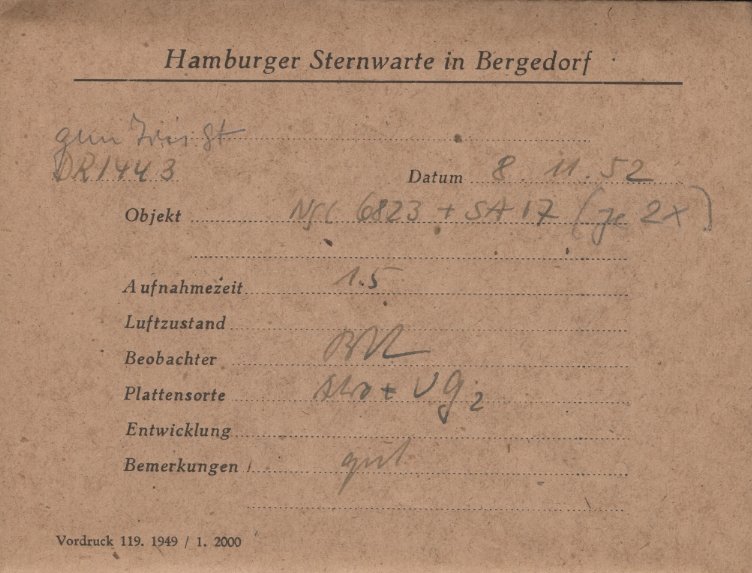 Hamburger Sternwarte in Bergedorf
DR1443
Datum 8. 11. 52
Objekt NGC 6823 + SA 17 (je 2x)
Aufnahmezeit 1.5
Luftzustand
Beobachter
Plattensorte + UG2
Entwicklung
Bemerkungen gut
Vordruck 119. 1949 / 1. 2000